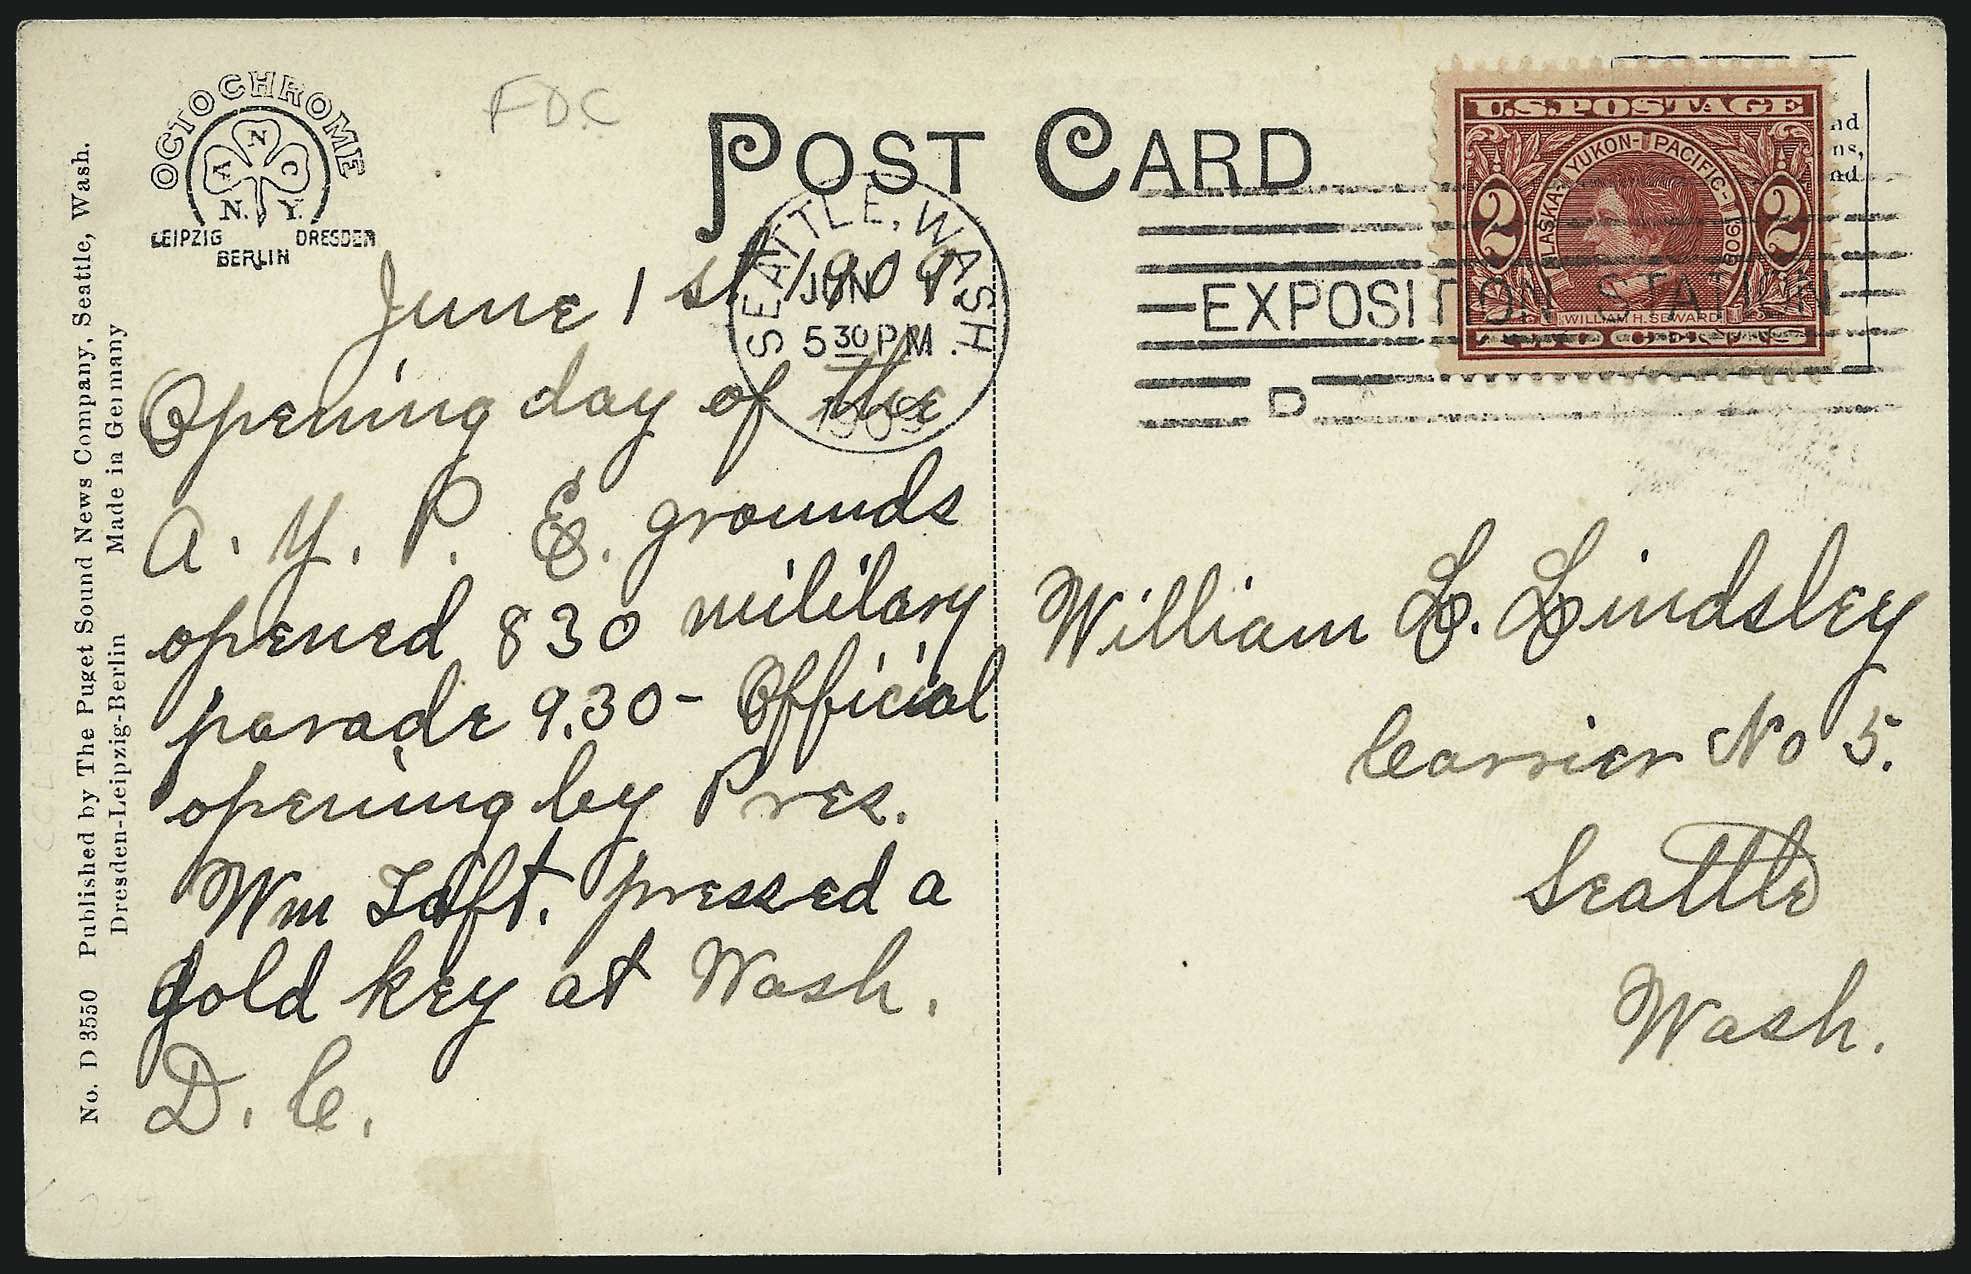 OCTOCHROME
A N C
N. Y.
LEIPZIG DRESDEN
BERLIN
FDC
POST CARD
No. D 3550 Published by The Puget Sound News Company, Seattle, Wash.
Dresden-Leipzig-Berlin Made in Germany
SEATTLE, WASH.
JUN
5 30 PM
1909
EXPOSITION STATION
D
U.S. POSTAGE
ALASKA-YUKON-PACIFIC-1909
2 2
WILLIAM H. SEWARD
nd
ns,
nd
June 1st 1909
Opening day of the
A. Y. P. E. grounds
opened 8 30 military
parade 9.30 - Official
opening by Pres.
Wm Taft. pressed a
gold key at Wash.
D. C.
William L. Lindsley
Carrier No 5.
Seattle
Wash.